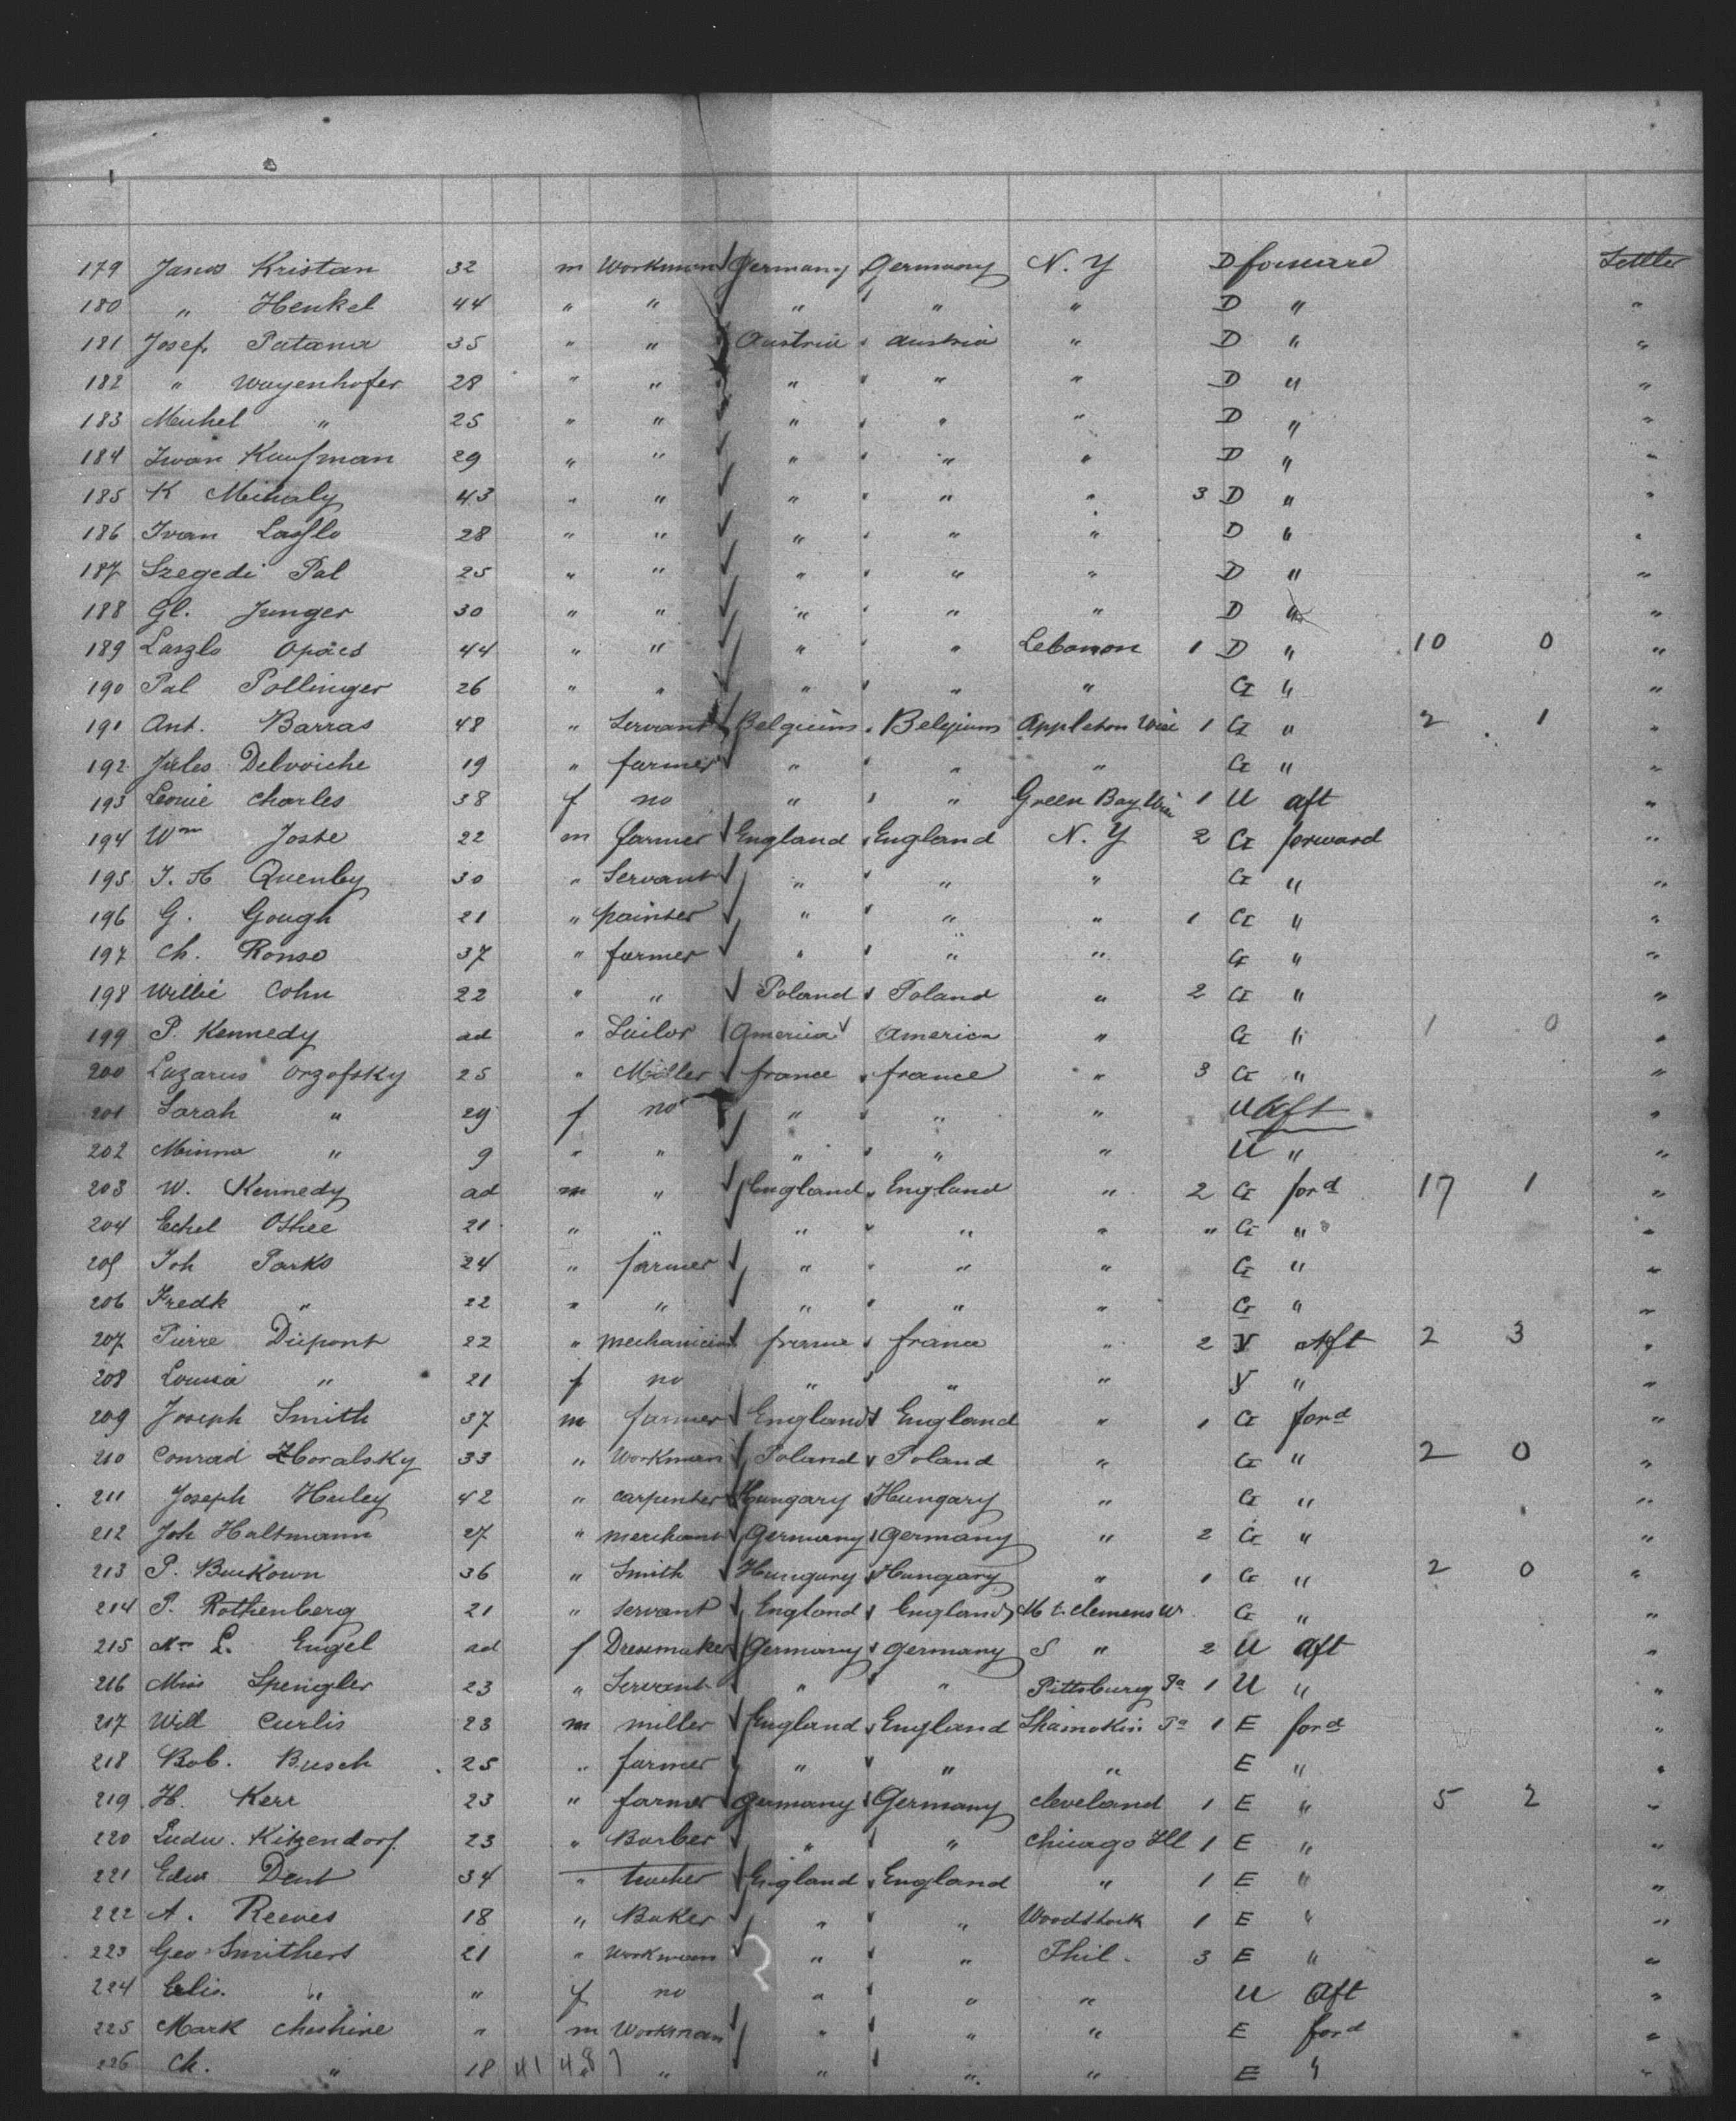 179 Janos Kristan 32 m Workman Germany Germany N. Y D forward Settler
180 " Henkel 44 " " " " " D " "
181 Josef Patana 35 " " Austria Austria " D " "
182 " Wayenhofer 28 " " " " " D " "
183 " 25 " " " " " D " "
184 Iwan Kaufman 29 " " " " " D " "
185 K Mihaly 43 " " " " " 3 D " "
186 Ivan Laszlo 28 " " " " " D " "
187 Szegedi Pal 25 " " " " " D " "
188 Gl. Junger 30 " " " " " D " "
189 Laszlo Opács 44 " " " " Lebanon 1 D " 10 0 "
190 Pal Pollinger 26 " " " " " G " "
191 Ant. Barras 48 " Servant Belgium Belgium Appleton Wisc 1 G " 2 1 "
192 Jules Delvoiche 19 " farmer " " " G " "
193 Leonie Charles 38 f no " " Green Bay Wisc 1 U aft "
194 Wm Joste 22 m farmer England England N. Y 2 G forward "
195 Quenby 30 " Servant " " " G " "
196 G. Gough 21 " painter " " " 1 G " "
197 Ch. Ronso 37 " farmer " " " G " "
198 Willie Cohn 22 " " Poland Poland " 2 G " "
199 P. Kennedy ad " Sailor America America " G " 1 0 "
200 Lazarus Orzofsky 25 " Miller france france " 3 G " "
201 Sarah " 29 f no " " " U aft "
202 Minna " 9 " " " " " U " "
203 W. Kennedy ad m " England England " 2 G ford 17 1 "
204 Echel Othee 21 " " " " " " G " "
205 Joh Parks 24 " farmer " " " G " "
206 Fredk " 22 " " " " " G " "
207 Pierre Dupont 22 " mechanician france france " 2 Y Aft 2 3 "
208 Louisa " 21 f no " " " Y " "
209 Joseph Smith 37 m farmer England England " 1 G ford "
210 Conrad 33 " Workman Poland Poland " G " 2 0 "
211 Joseph Huley 42 " carpenter Hungary Hungary " G " "
212 Joh Haltmann 27 " merchant Germany Germany " 2 G " "
213 P. Buckown 36 " Smith Hungary Hungary " 1 G " 2 0 "
214 P. Rothenberg 21 " servant England England Mt. Clemens G " "
215 L. Engel ad f Dressmaker Germany Germany S " 2 U aft "
216 Miss Spengler 23 " Servant " " Pittsburg Pa 1 U " "
217 Will Curlis 23 m miller England England Shamokin Pa 1 E ford "
218 Bob. Busch 25 " farmer " " " E " "
219 H. Kerr 23 " farmer Germany Germany Cleveland 1 E " 5 2 "
220 Ludw. Kitzendorf. 23 " Barber " " Chicago Ill 1 E " "
221 Edw Dent 34 " teacher England England " 1 E " "
222 A. Reeves 18 " Baker " " Woodstock 1 E " "
223 Geo Smithers 21 " Workman " " Phil. 3 E " "
224 Elis. " " f no " " " U Aft "
225 Mark Cheshire " m Workman " " " E ford "
226 Ch. " 18 41 48 " " " " E " "